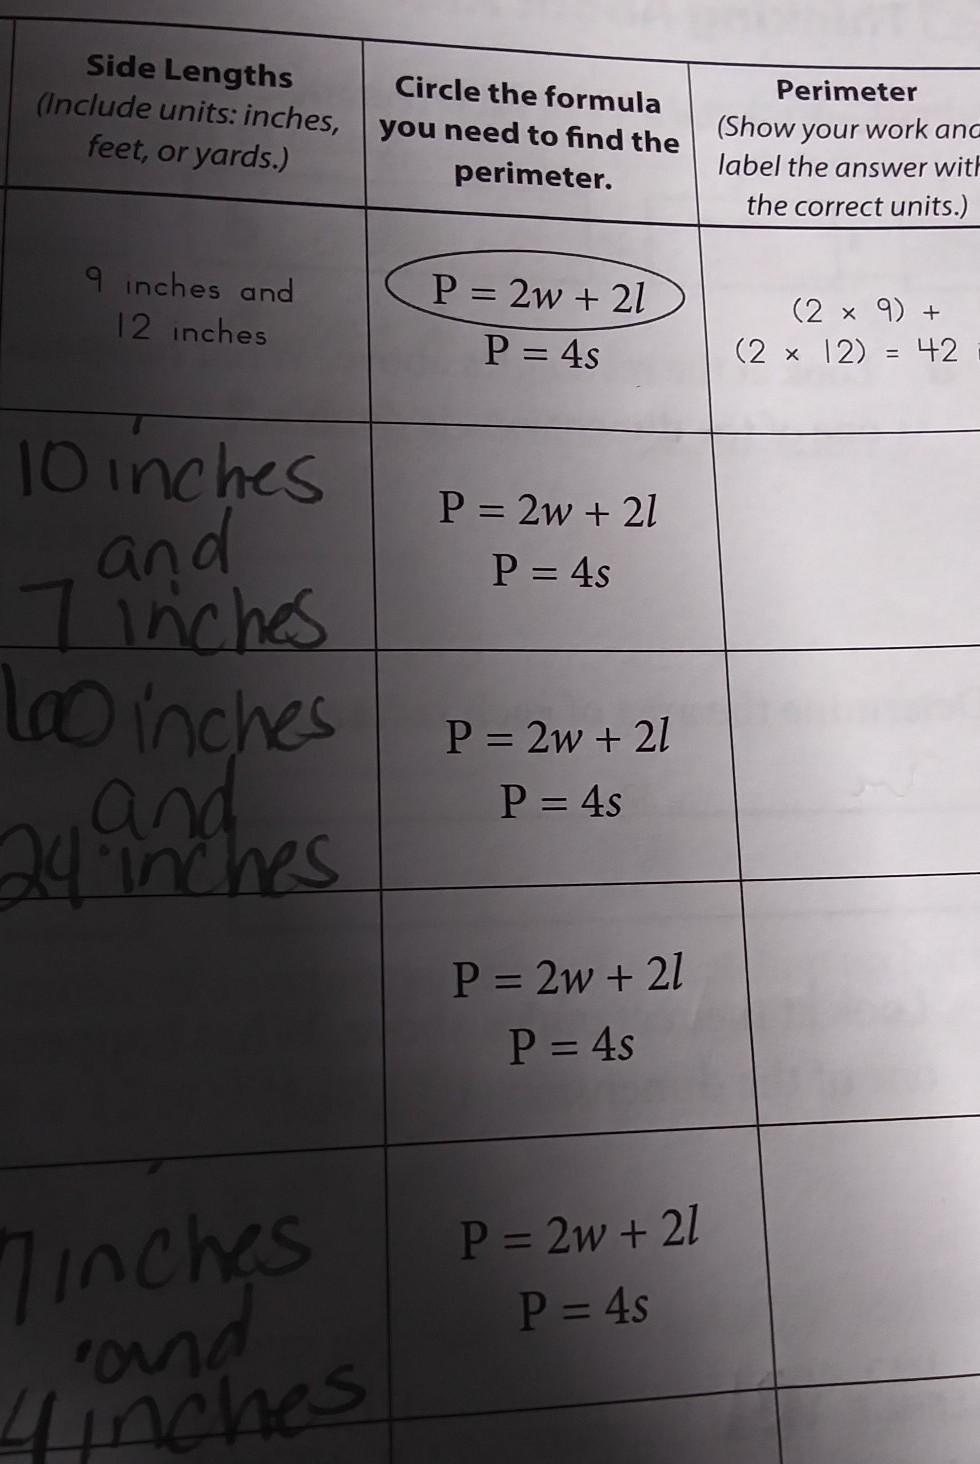 Side Lengths
(Include units: inches,
feet, or yards.)
Circle the formula
you need to find the
perimeter.
Perimeter
(Show your work and
label the answer with
the correct units.)
9 inches and
12 inches
P = 2w + 2l
P = 4s
(2 × 9) +
(2 × 12) = 42
10 inches
and
7 inches
P = 2w + 2l
P = 4s
100 inches
and
24 inches
P = 2w + 2l
P = 4s
P = 2w + 2l
P = 4s
7 inches
and
4 inches
P = 2w + 2l
P = 4s